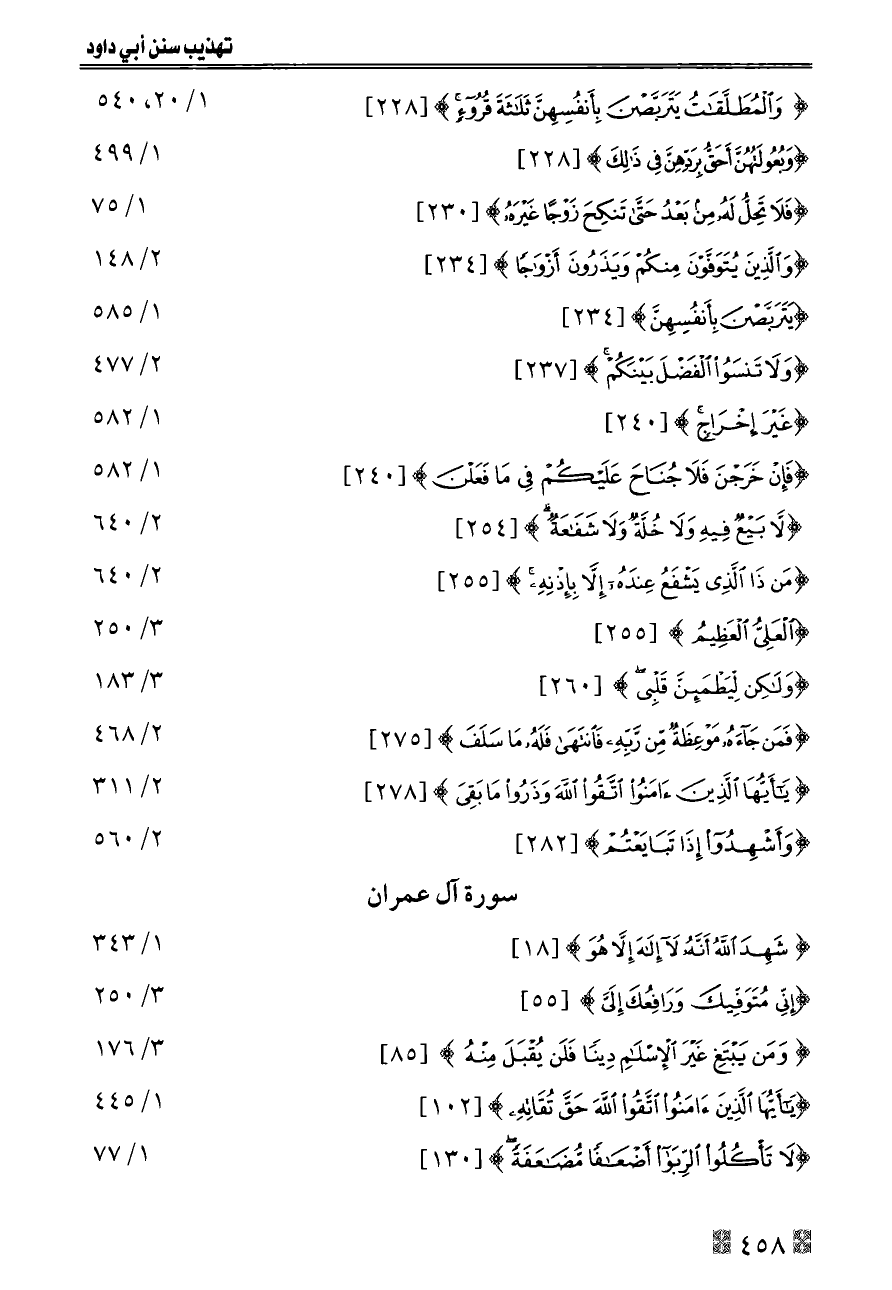 تهذيب سنن أبي داود
﴿ وَٱلْمُطَلَّقَٰتُ يَتَرَبَّصْنَ بِأَنفُسِهِنَّ ثَلَٰثَةَ قُرُوٓءٍۚ ﴾ [٢٢٨] ١/ ٢٠، ٥٤٠
﴿وَبُعُولَتُهُنَّ أَحَقُّ بِرَدِّهِنَّ فِى ذَٰلِكَ ﴾ [٢٢٨] ١/ ٤٩٩
﴿فَلَا تَحِلُّ لَهُۥ مِنۢ بَعْدُ حَتَّىٰ تَنكِحَ زَوْجًا غَيْرَهُۥ﴾ [٢٣٠] ١/ ٧٥
﴿وَٱلَّذِينَ يُتَوَفَّوْنَ مِنكُمْ وَيَذَرُونَ أَزْوَٰجًا ﴾ [٢٣٤] ٢/ ١٤٨
﴿يَتَرَبَّصْنَ بِأَنفُسِهِنَّ﴾ [٢٣٤] ١/ ٥٨٥
﴿وَلَا تَنسَوُا۟ ٱلْفَضْلَ بَيْنَكُمْۚ ﴾ [٢٣٧] ٢/ ٤٧٧
﴿غَيْرَ إِخْرَاجٍۚ ﴾ [٢٤٠] ١/ ٥٨٢
﴿فَإِنْ خَرَجْنَ فَلَا جُنَاحَ عَلَيْكُمْ فِى مَا فَعَلْنَ ﴾ [٢٤٠] ١/ ٥٨٢
﴿لَّا بَيْعٌ فِيهِ وَلَا خُلَّةٌ وَلَا شَفَٰعَةٌۗ ﴾ [٢٥٤] ٢/ ٦٤٠
﴿مَن ذَا ٱلَّذِى يَشْفَعُ عِندَهُۥٓ إِلَّا بِإِذْنِهِۦۚ ﴾ [٢٥٥] ٢/ ٦٤٠
﴿ٱلْعَلِىُّ ٱلْعَظِيمُ ﴾ [٢٥٥] ٣/ ٢٥٠
﴿وَلَٰكِن لِّيَطْمَئِنَّ قَلْبِىۖ ﴾ [٢٦٠] ٣/ ١٨٣
﴿فَمَن جَآءَهُۥ مَوْعِظَةٌ مِّن رَّبِّهِۦ فَٱنتَهَىٰ فَلَهُۥ مَا سَلَفَ ﴾ [٢٧٥] ٢/ ٤٦٨
﴿ يَٰٓأَيُّهَا ٱلَّذِينَ ءَامَنُوا۟ ٱتَّقُوا۟ ٱللَّهَ وَذَرُوا۟ مَا بَقِىَ ﴾ [٢٧٨] ٢/ ٣١١
﴿وَأَشْهِدُوٓا۟ إِذَا تَبَايَعْتُمْ﴾ [٢٨٢] ٢/ ٥٦٠
سورة آل عمران
﴿ شَهِدَ ٱللَّهُ أَنَّهُۥ لَآ إِلَٰهَ إِلَّا هُوَ ﴾ [١٨] ١/ ٣٤٣
﴿إِنِّى مُتَوَفِّيكَ وَرَافِعُكَ إِلَىَّ ﴾ [٥٥] ٣/ ٢٥٠
﴿ وَمَن يَبْتَغِ غَيْرَ ٱلْإِسْلَٰمِ دِينًا فَلَن يُقْبَلَ مِنْهُ ﴾ [٨٥] ٣/ ١٧٦
﴿يَٰٓأَيُّهَا ٱلَّذِينَ ءَامَنُوا۟ ٱتَّقُوا۟ ٱللَّهَ حَقَّ تُقَاتِهِۦ ﴾ [١٠٢] ١/ ٤٤٥
﴿لَا تَأْكُلُوا۟ ٱلرِّبَوٰٓا۟ أَضْعَٰفًا مُّضَٰعَفَةًۖ ﴾ [١٣٠] ١/ ٧٧
٤٥٨